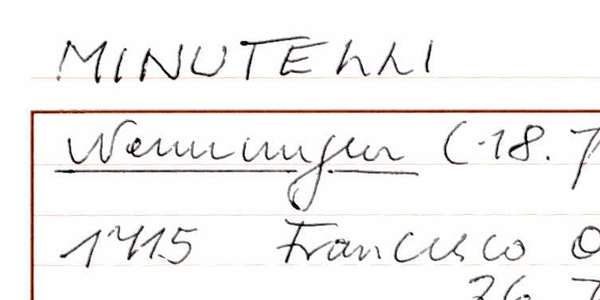 MINUTELLI
Wenningen (18. 7
1415 Francesco
26. 7